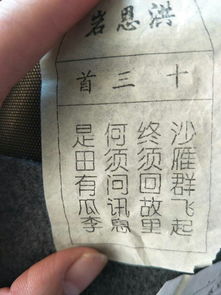 洪恩岩
十三首
沙雁群飞起
终须回故里
何须问讯息
是田有瓜李